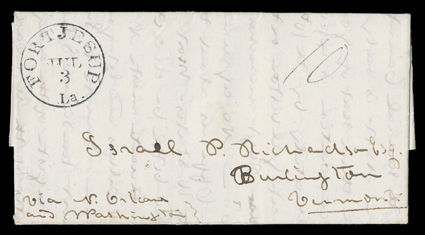 FORT JESUP
JUL
3
La.
10
Israel P. Richardson Esq.
Burlington
Vermont
via N. Orleans
and Washington